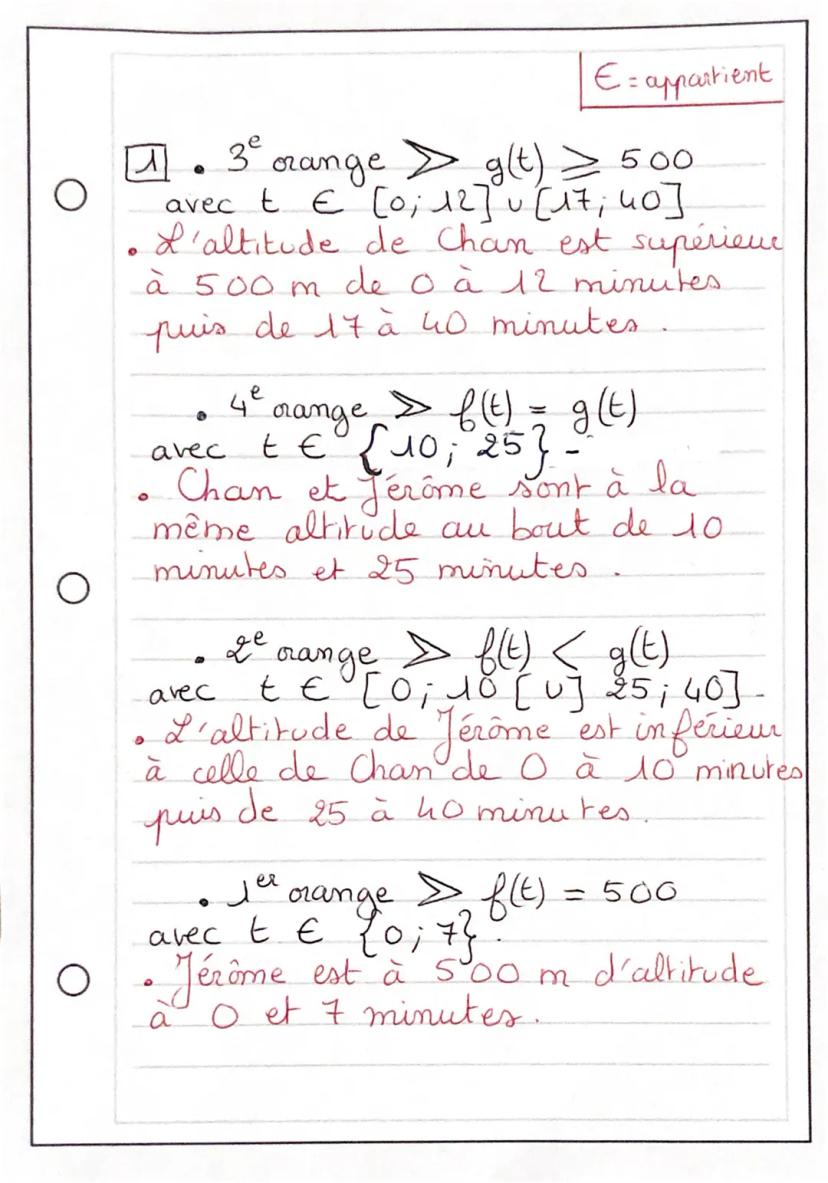 ∈ = appartient
1 . 3e orange > g(t) ⩾ 500
avec t ∈ [0; 12] ∪ [17; 40]
. L'altitude de Chan est supérieur
à 500 m de 0 à 12 minutes
puis de 17 à 40 minutes.
. 4e orange > f(t) = g(t)
avec t ∈ {10; 25} -
. Chan et Jérôme sont à la
même altitude au bout de 10
minutes et 25 minutes.
. 2e orange > f(t) < g(t)
avec t ∈ [0; 10 [ ∪ ] 25; 40] -
. L'altitude de Jérôme est inférieur
à celle de Chan de 0 à 10 minutes
puis de 25 à 40 minutes.
. 1er orange > f(t) = 500
avec t ∈ {0; 7}.
. Jérôme est à 500 m d'altitude
à 0 et 7 minutes.